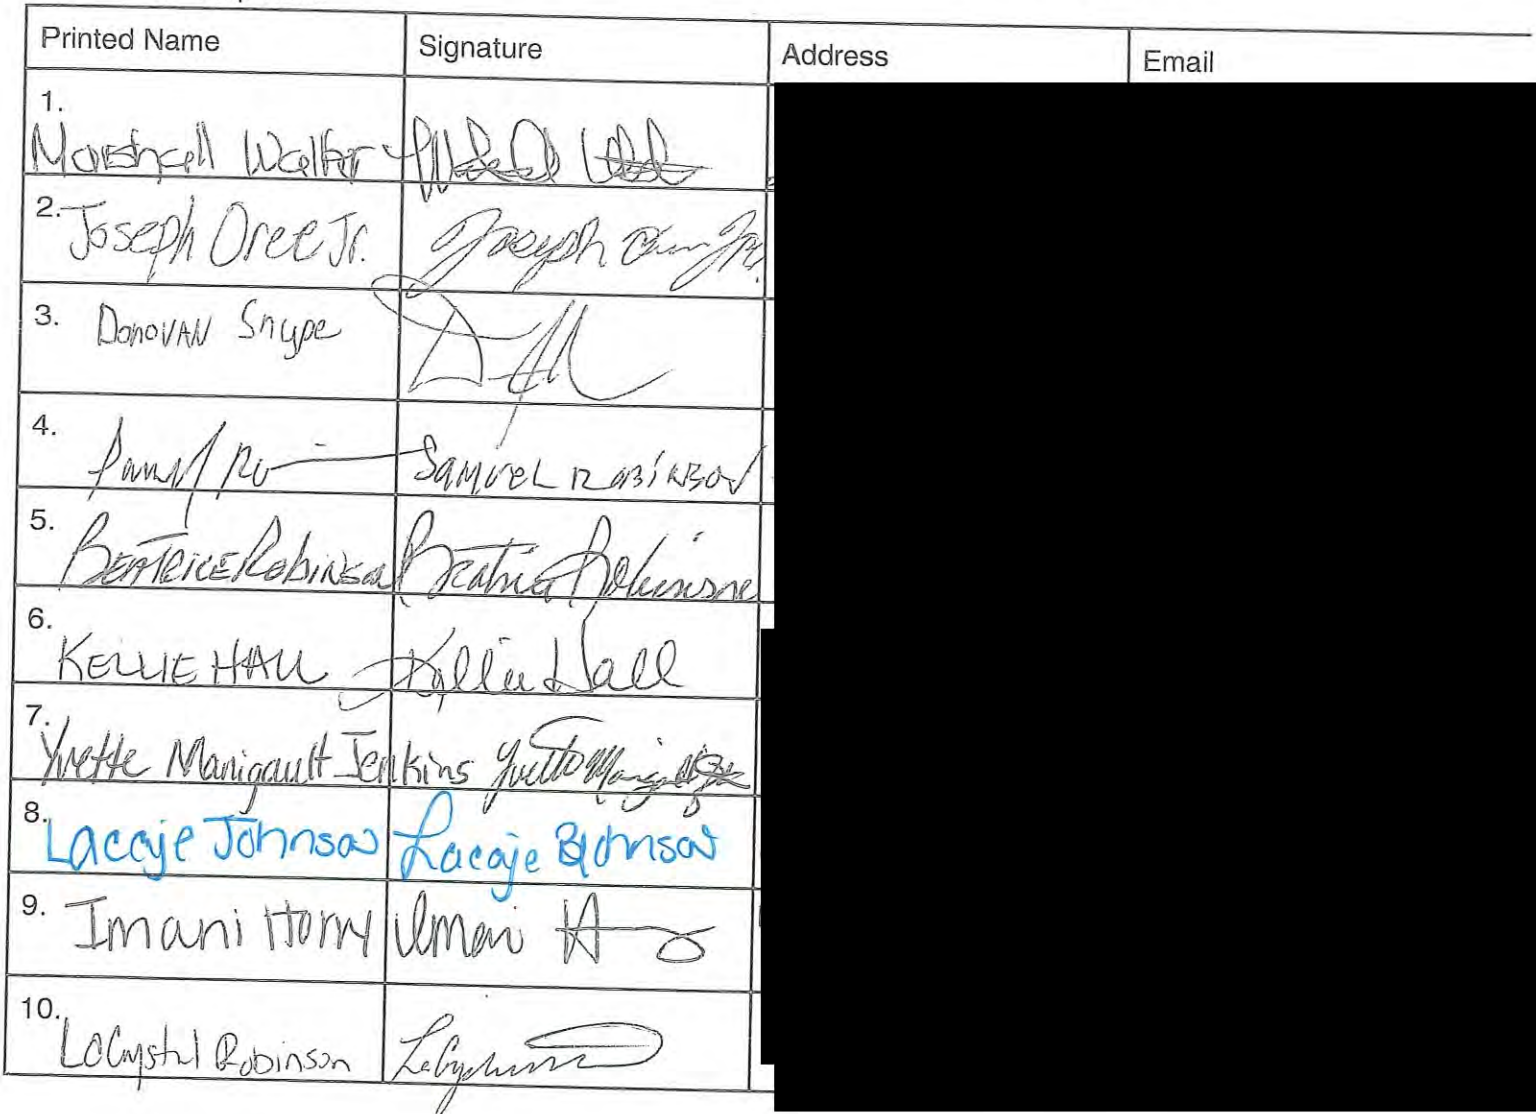 Printed Name Signature Address Email
1.
Marshall Walker
2. Joseph Oree Jr. Joseph Oree Jr.
3. Donovan Snype
4. SAMUEL ROBINSON
5. BEATRICE Robinson Beatrice Robinson
6. KELLIE HALL Kellie Hall
7. Yvette Manigault Jenkins Yvette
8. Lacaje Johnson Lacaje B Johnson
9. Imani Horry Imani H
10. LaCrystal Robinson